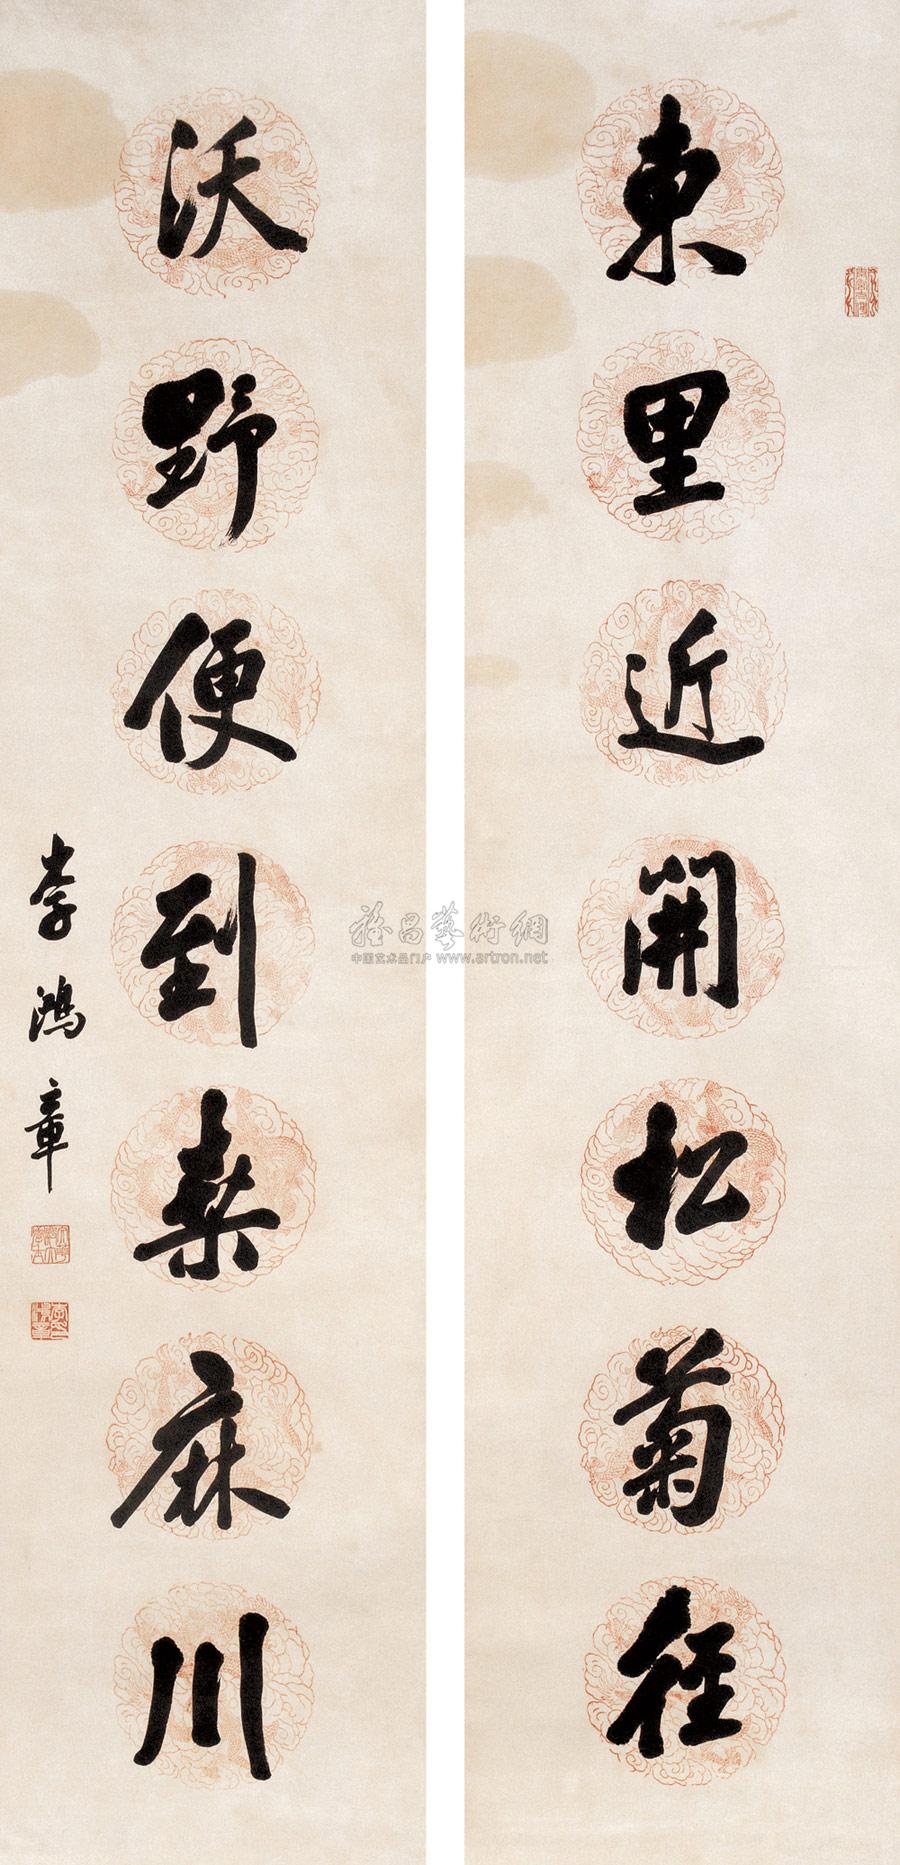 東里近開松菊徑
沃野便到桑麻川
李鴻章
雅昌藝術網
中国艺术品门户 www.artron.net